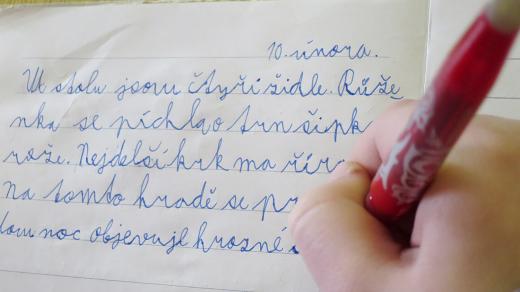 10. února.
U stolu jsou čtyři židle. Růže
nka se píchla o trn šipk
rože. Nejdelší krk ma
Na tomto hradě se pr
dou noc objevuje hrozné